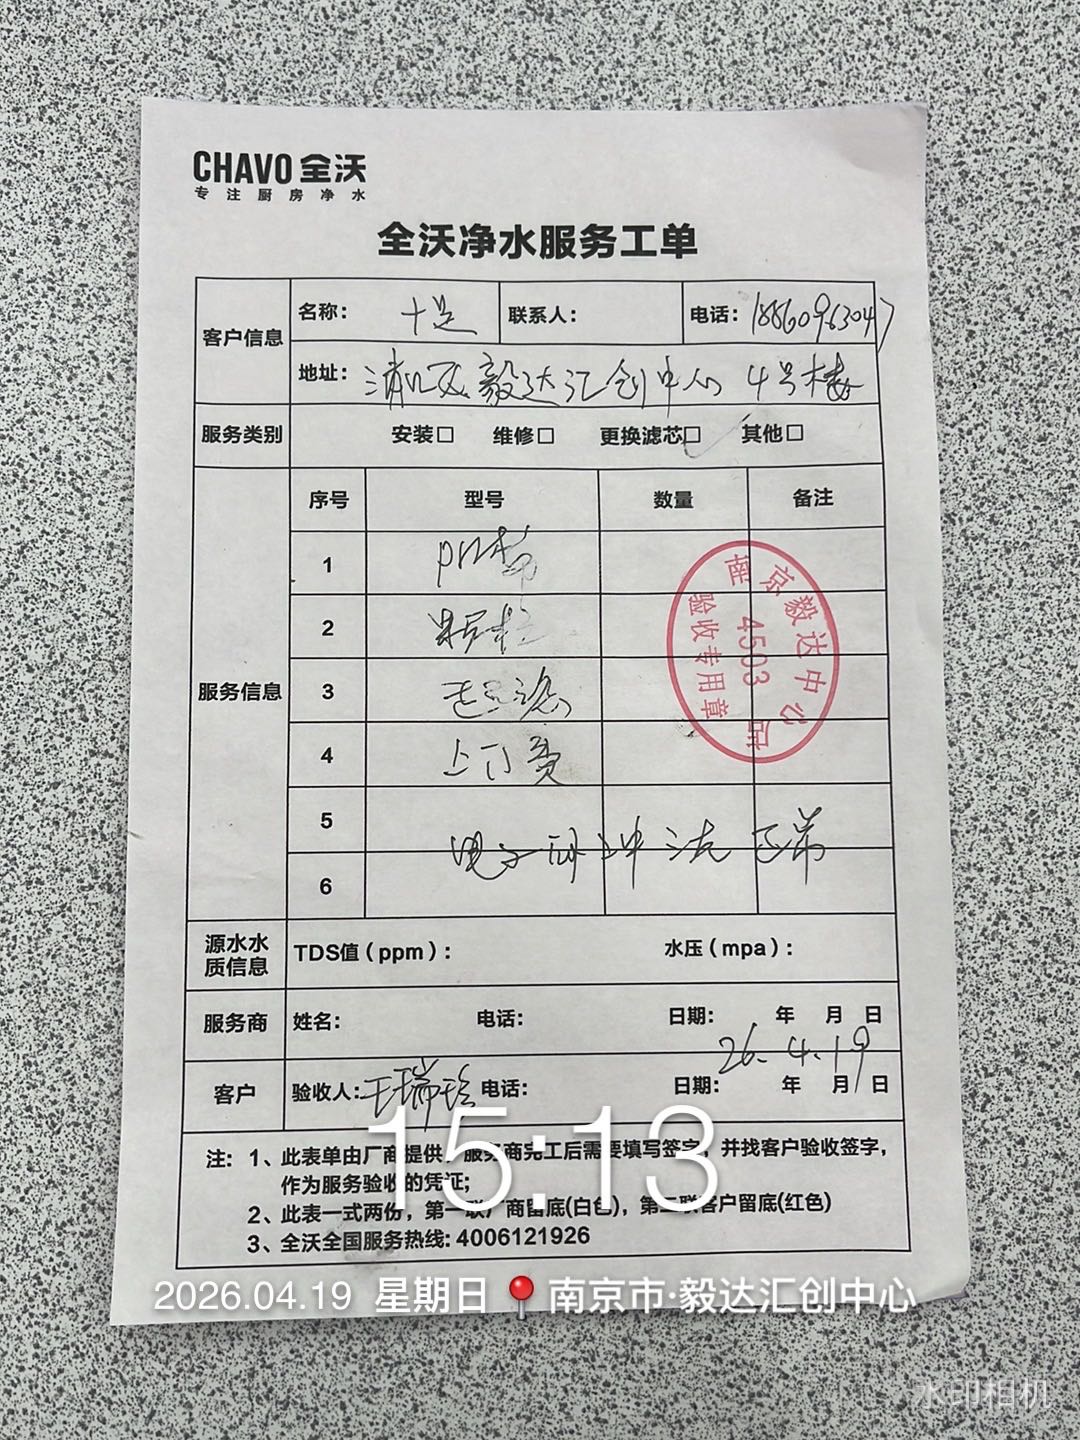 CHAVO 全沃
专注厨房净水
全沃净水服务工单
客户信息 名称: 十足 联系人: 电话: 18860963047
地址: 浦口区毅达汇创中心 4号楼
服务类别 安装□ 维修□ 更换滤芯□ 其他□
服务信息 序号 型号 数量 备注
1 PP棉
2 颗粒
3 超滤
4 上门费
5
电子 正常
6
南京毅达中心店
4503
验收专用章
源水水质信息 TDS值(ppm): 水压(mpa):
服务商 姓名: 电话: 日期: 年 月 日
26.4.19
客户 验收人: 王瑞珍 电话: 日期: 年 月 日
注: 1、此表单由厂商提供,服务商完工后需要填写签字,并找客户验收签字,
作为服务验收的凭证;
2、此表一式两份,第一联厂商留底(白色),第二联客户留底(红色)
3、全沃全国服务热线:4006121926
15:13
2026.04.19 星期日 南京市·毅达汇创中心
水印相机